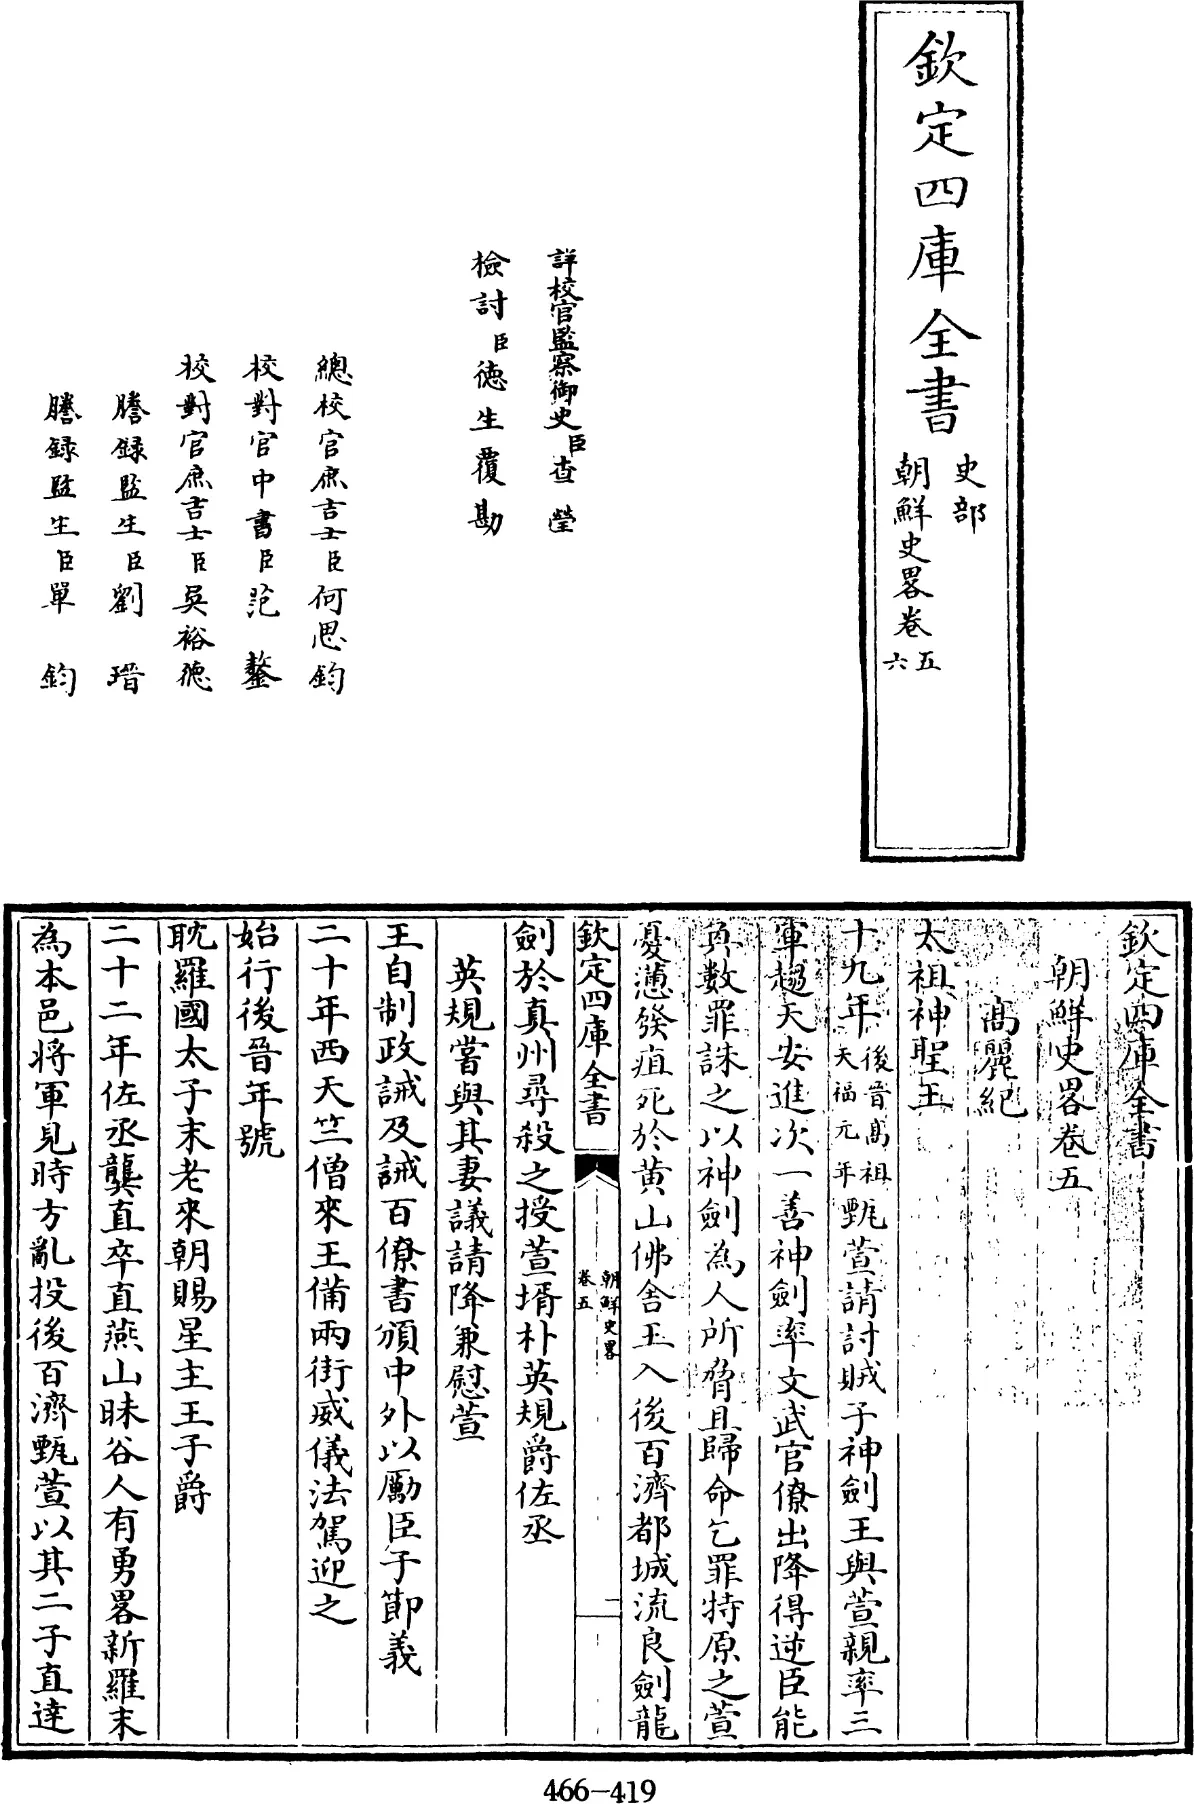 欽定四庫全書
史部
朝鮮史畧卷五六
詳校官監察御史臣查瑩
檢討臣德生覆勘
總校官庶吉士臣何思鈞
校對官中書臣范鏊
校對官庶吉士臣吳裕德
謄錄監生臣劉瑨
謄錄監生臣單鈞
欽定四庫全書
朝鮮史畧卷五
高麗紀
太祖神聖王
十九年後晉高祖天福元年甄萱請討賊子神劍王與萱親率三
軍趨天安進次一善神劍率文武官僚出降得逆臣能
奐數罪誅之以神劍為人所脅且歸命乞罪特原之萱
憂懣發疽死於黄山佛舍王入後百濟都城流良劍龍
欽定四庫全書
朝鮮史畧
卷五
一
劍於真州尋殺之授萱壻朴英規爵佐丞
英規嘗與其妻議請降兼慰萱
王自制政誡及誡百僚書頒中外以勵臣子節義
二十年西天竺僧來王備兩街威儀法駕迎之
始行後晉年號
耽羅國太子末老來朝賜星主王子爵
二十二年佐丞龔直卒直燕山昧谷人有勇畧新羅末
為本邑將軍見時方亂投後百濟甄萱以其二子直達
466-419